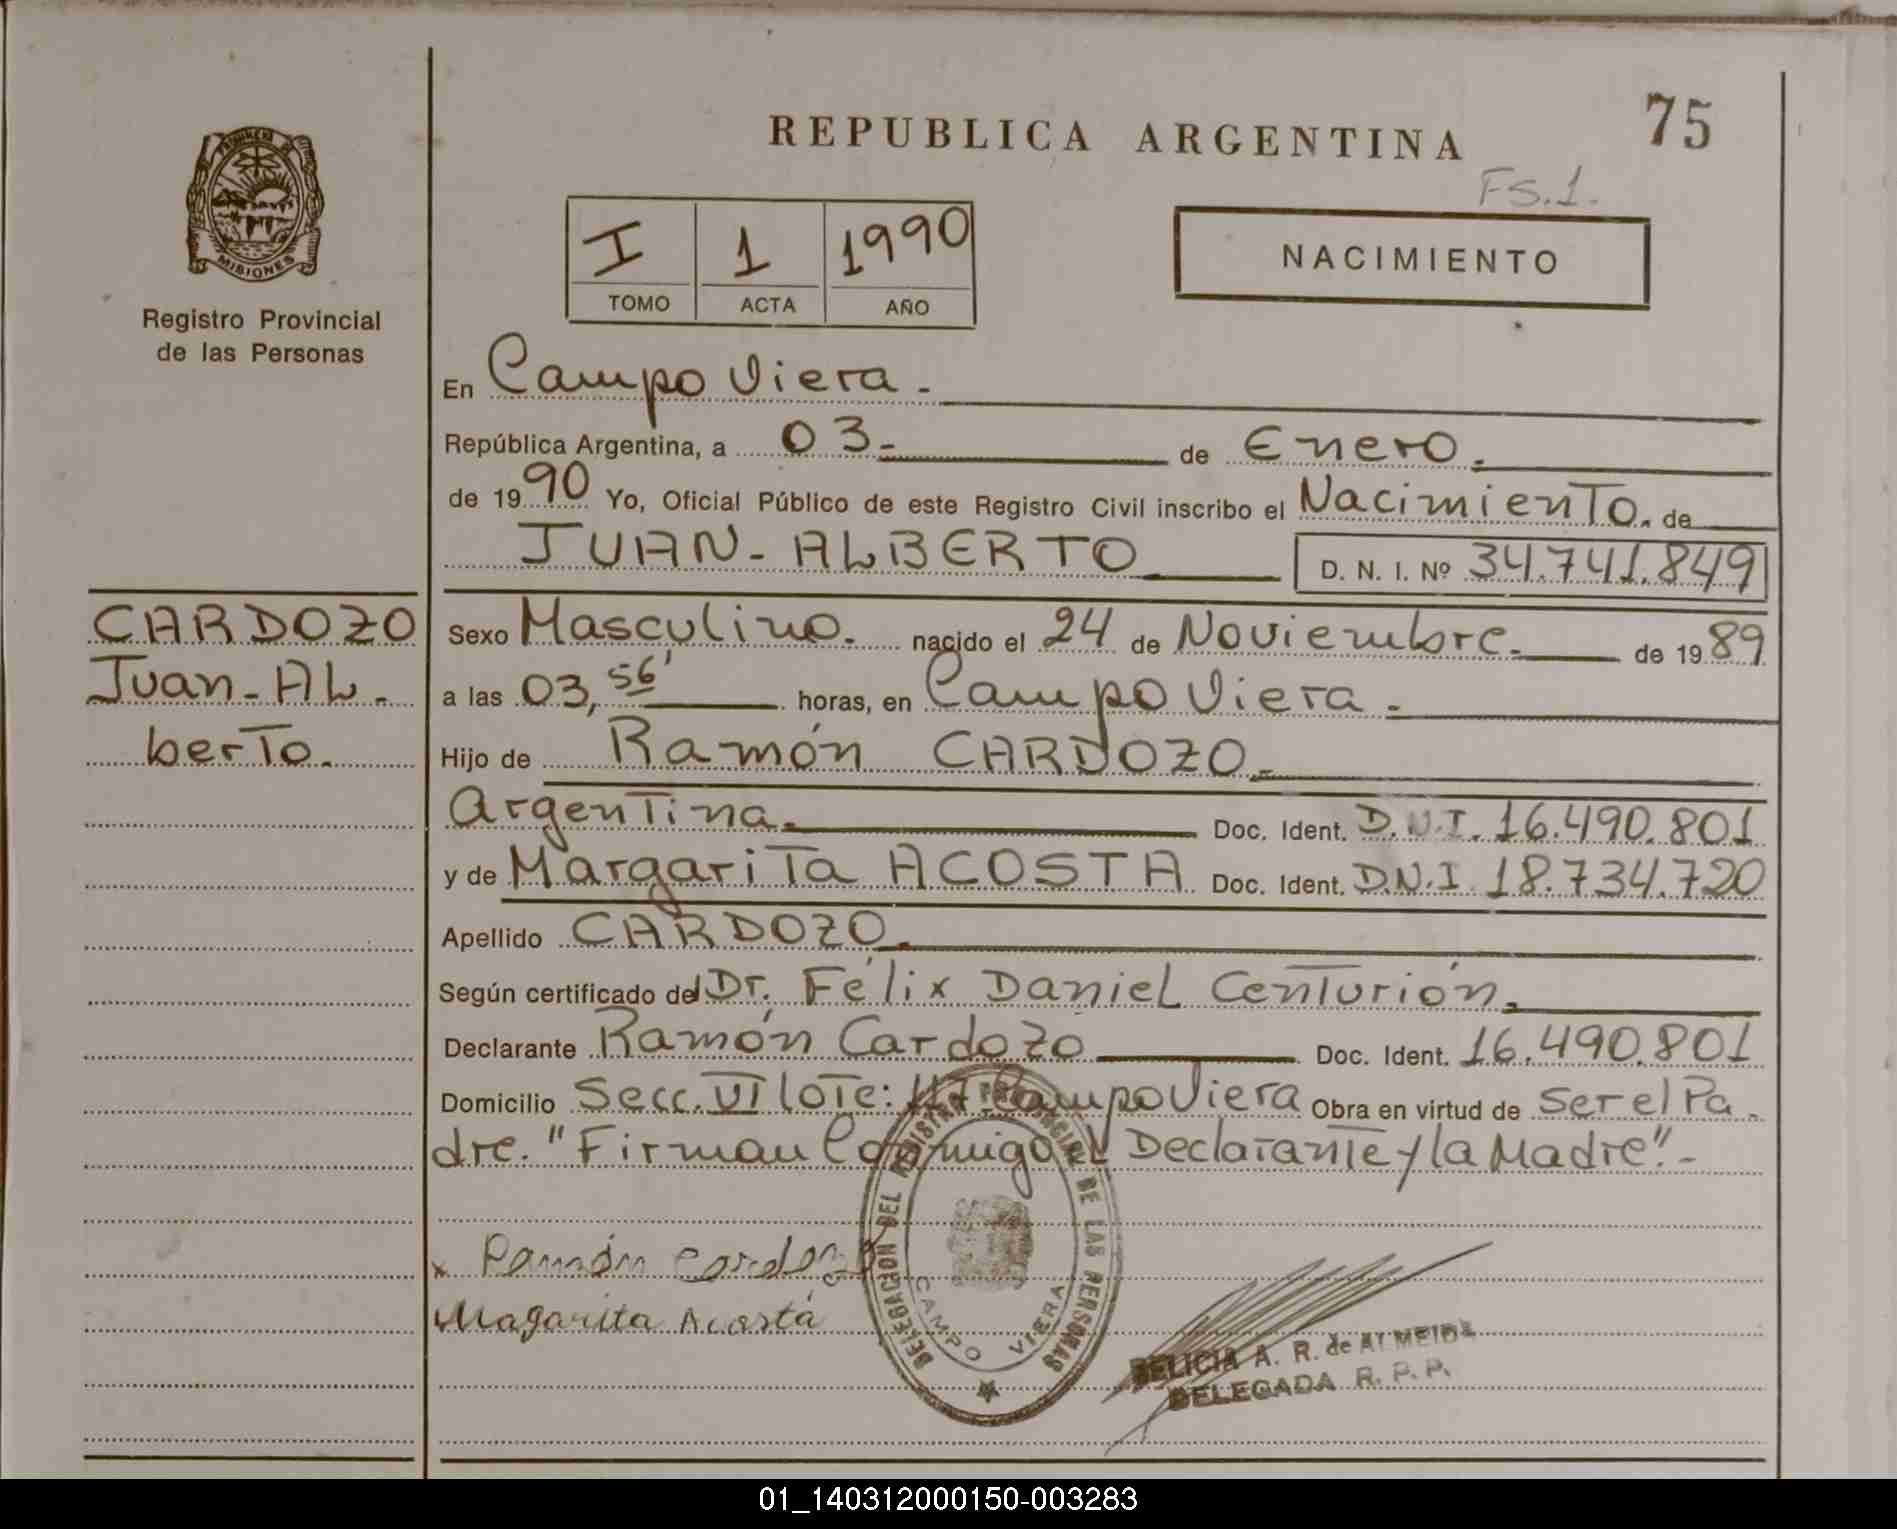 REPUBLICA ARGENTINA
75
FS.1.
MISIONES
Registro Provincial
de las Personas
I 1 1990
TOMO ACTA AÑO
NACIMIENTO
En Campo Viera.-
República Argentina, a 03.- de Enero.
de 1990 Yo, Oficial Público de este Registro Civil inscribo el Nacimiento. de
JUAN-ALBERTO D. N. I. Nº 34.741.849
CARDOZO
Juan-Al-
berto.
Sexo Masculino. nacido el 24 de Noviembre.- de 1989
a las 03,56' horas, en Campo Viera.-
Hijo de Ramón CARDOZO.-
Argentina.- Doc. Ident. D.N.I. 16.490.801
y de Margarita ACOSTA Doc. Ident. D.N.I. 18.734.720
Apellido CARDOZO.
Según certificado del Dr. Félix Daniel Centurión.
Declarante Ramón Cardozo Doc. Ident. 16.490.801
Domicilio Secc. VI lote: 117 Campo Viera Obra en virtud de Ser el Pa-
dre. "Firman Conmigo el Declarante y la Madre".-
x Ramón Cardozo
Magarita Acosta
DELEGACION DEL REGISTRO PROVINCIAL DE LAS PERSONAS
CAMPO VIERA
DELICIA A. R. de ALMEIDA
DELEGADA R. P. P.
01_140312000150-003283